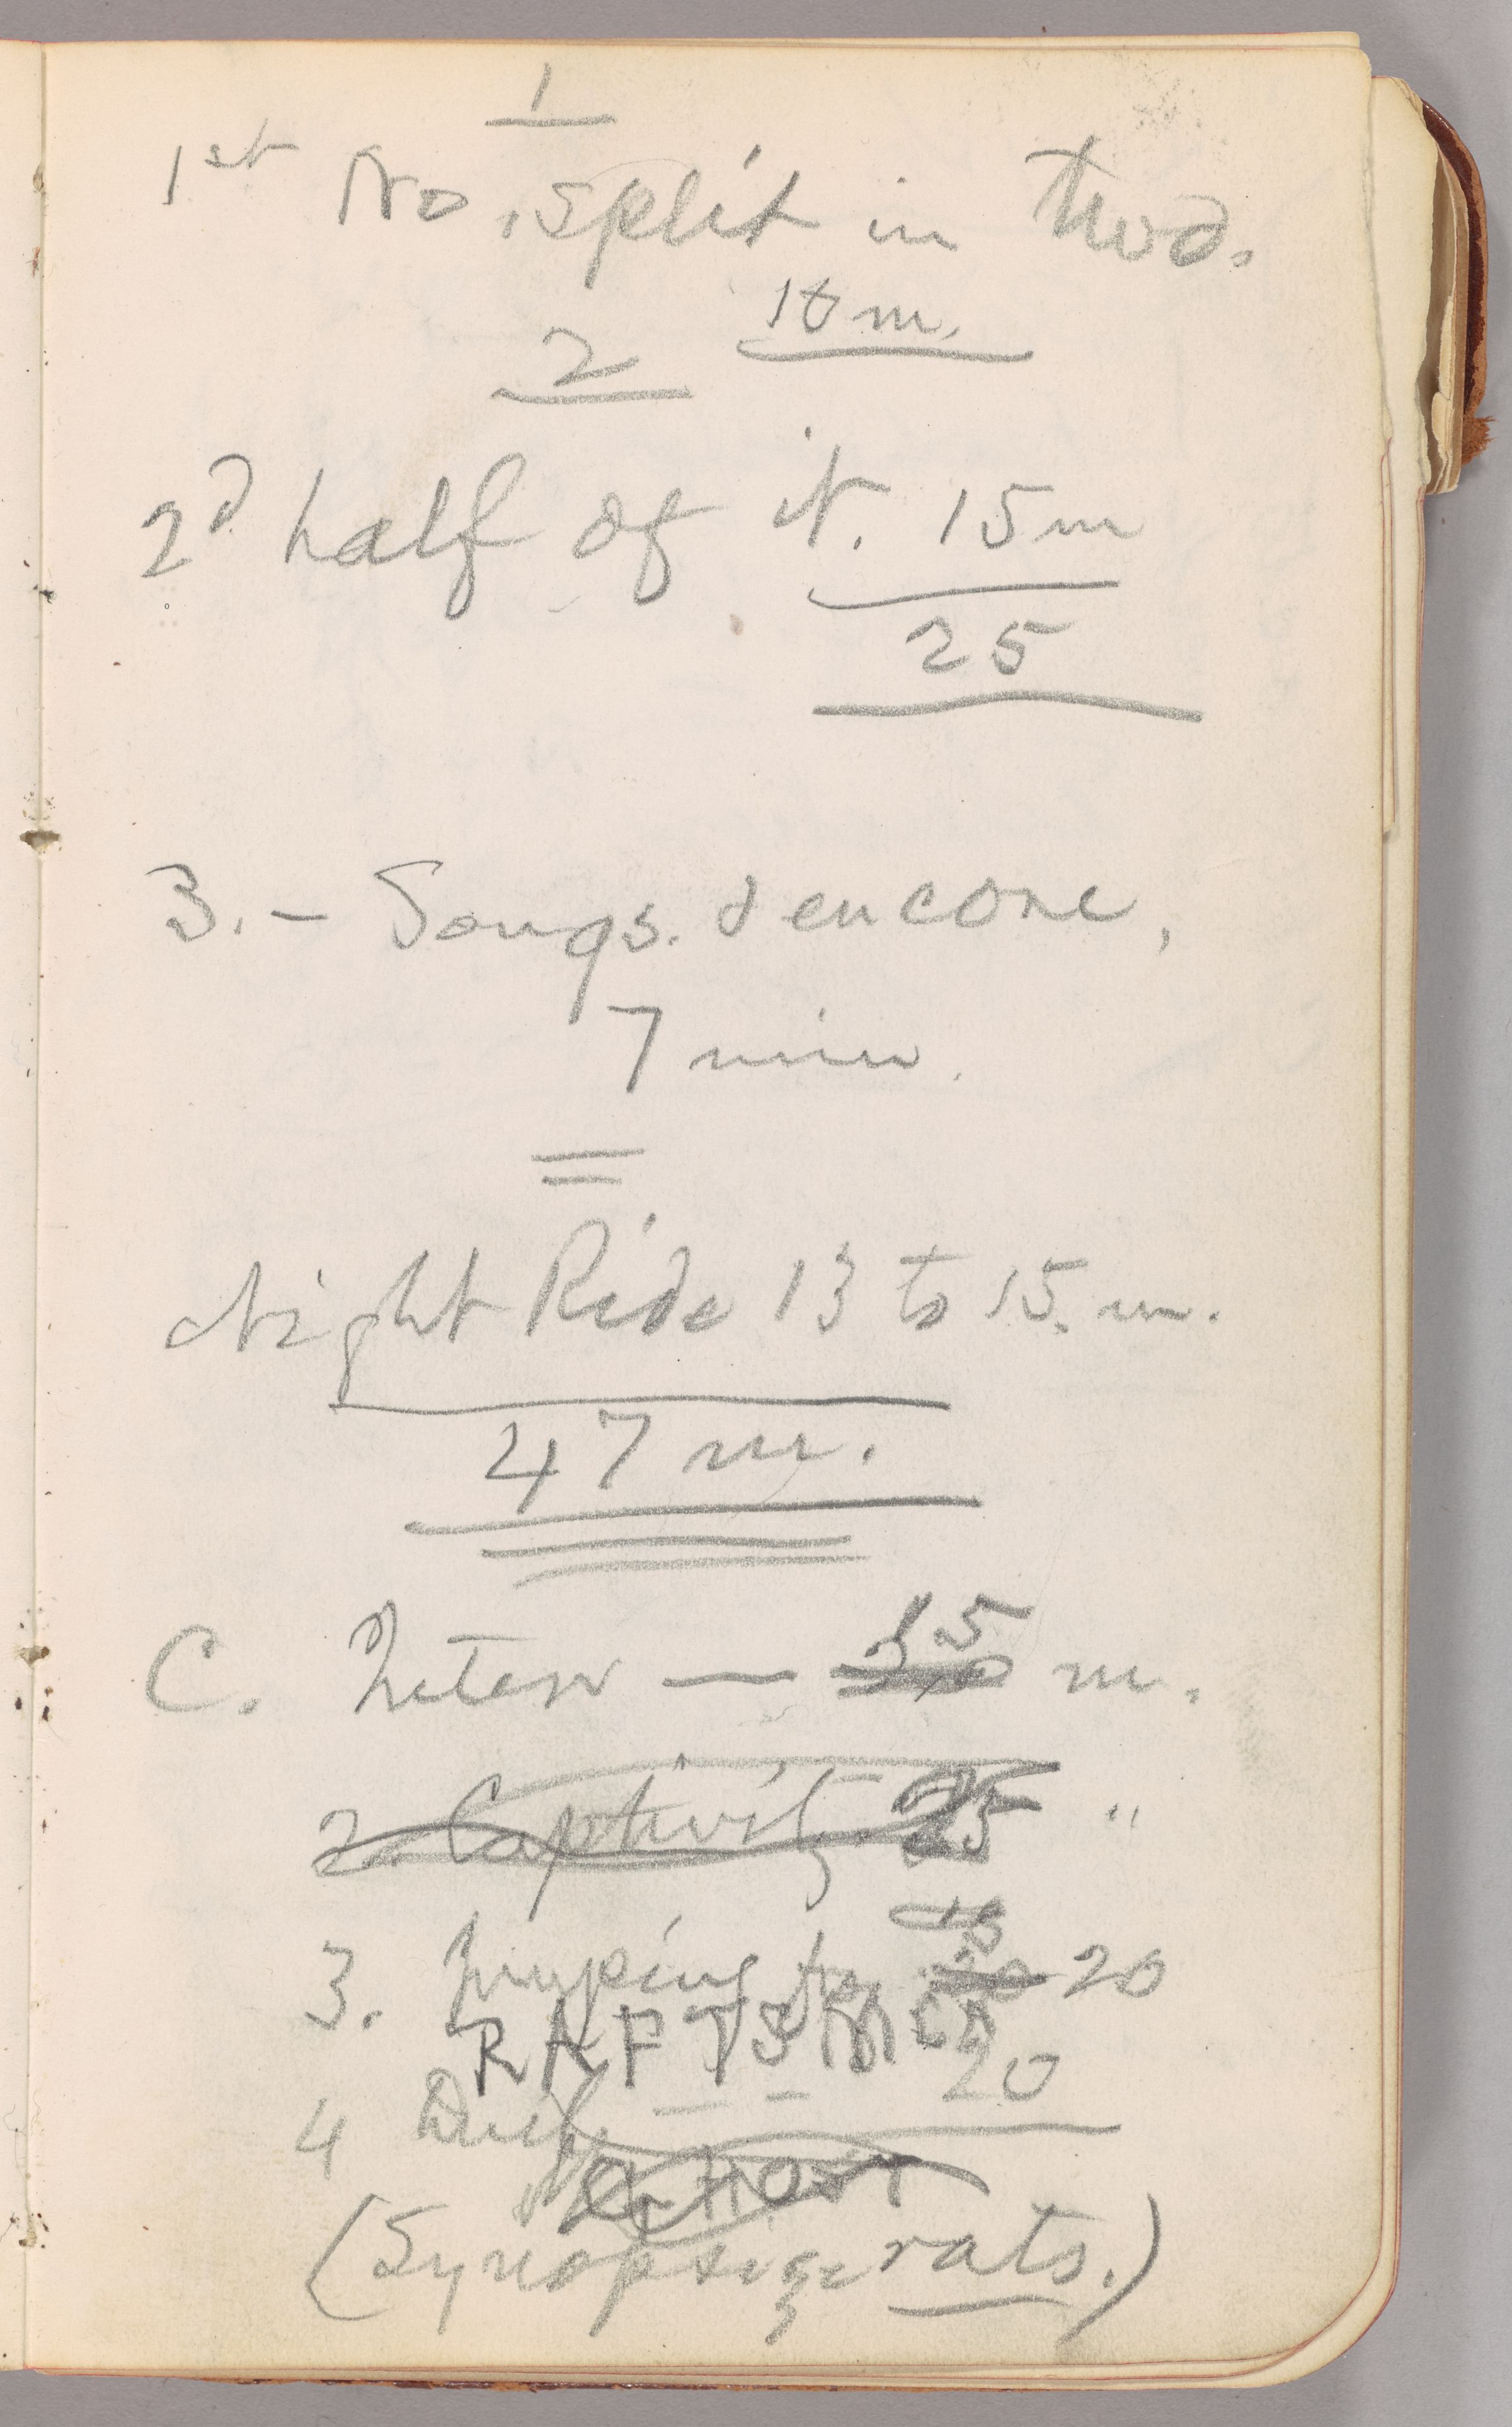 1
1st No. split in two.
10 m.
2
2d half of it. 15 m
25
3. – Songs. & encore,
7 min.
Night Ride 13 to 15. m.
47 m.
C. Inter — 15 m.
2. Captivity 25 "
3. Jumping 20
RAFTSMEN
20
4 Duel
GHOST
(Synopsize rats.)